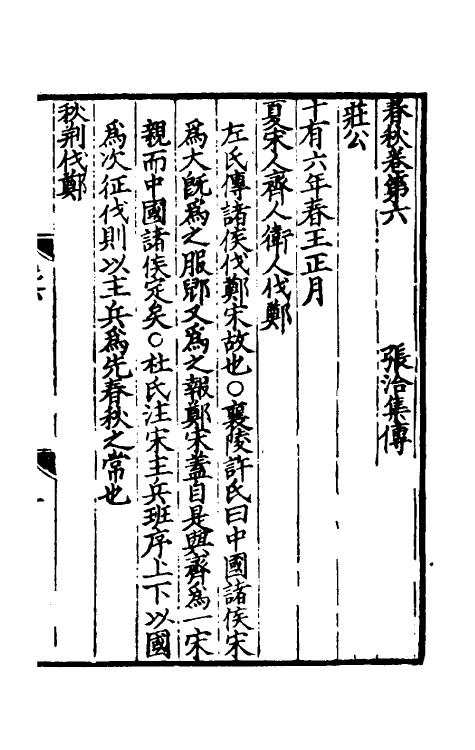 春秋卷第六　張洽集傳
莊公
十有六年春王正月
夏宋人齊人衛人伐鄭
左氏傳諸侯伐鄭宋故也○襄陵許氏曰中國諸侯宋
爲大旣爲之服郳又爲之報鄭宋蓋自是與齊爲一宋
親而中國諸侯定矣○杜氏注宋主兵班序上下以國
爲次征伐則以主兵爲先春秋之常也
秋荆伐鄭